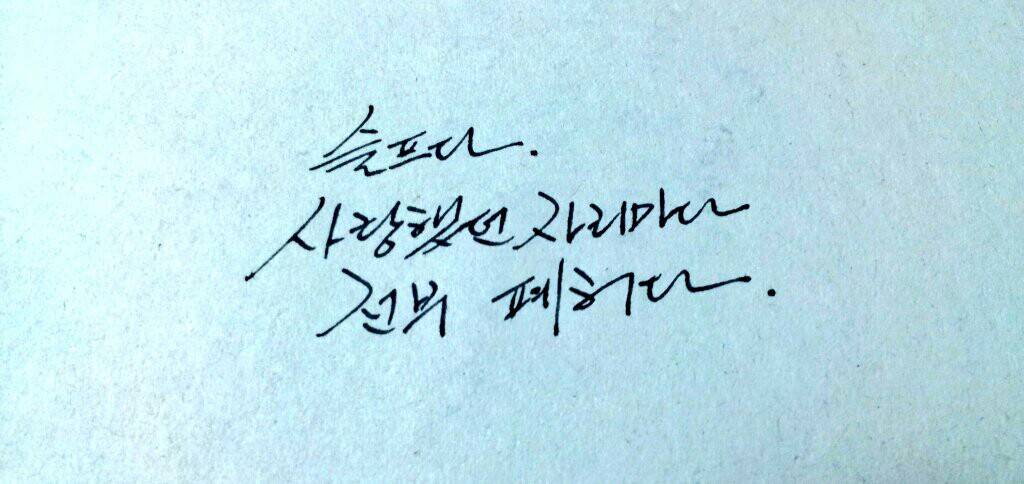 슬프다.
사랑했던 자리마다
전부 폐허다.